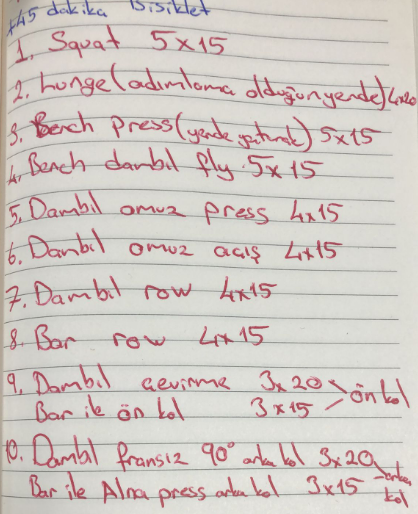 45 dakika Bisiklet
1. Squat 5x15
2. Lunge (adımlama olduğun yerde) 4x20
3. Bench press (yerde yatarak) 5x15
4. Bench dambıl fly 5x15
5. Dambıl omuz press 4x15
6. Dambıl omuz açış 4x15
7. Dambıl row 4x15
8. Bar row 4x15
9. Dambıl çevirme 3x20 > ön kol
Bar ile ön kol 3x15
10. Dambıl fransız 90° arka kol 3x20
Bar ile Alna press arka kol 3x15 - arka kol